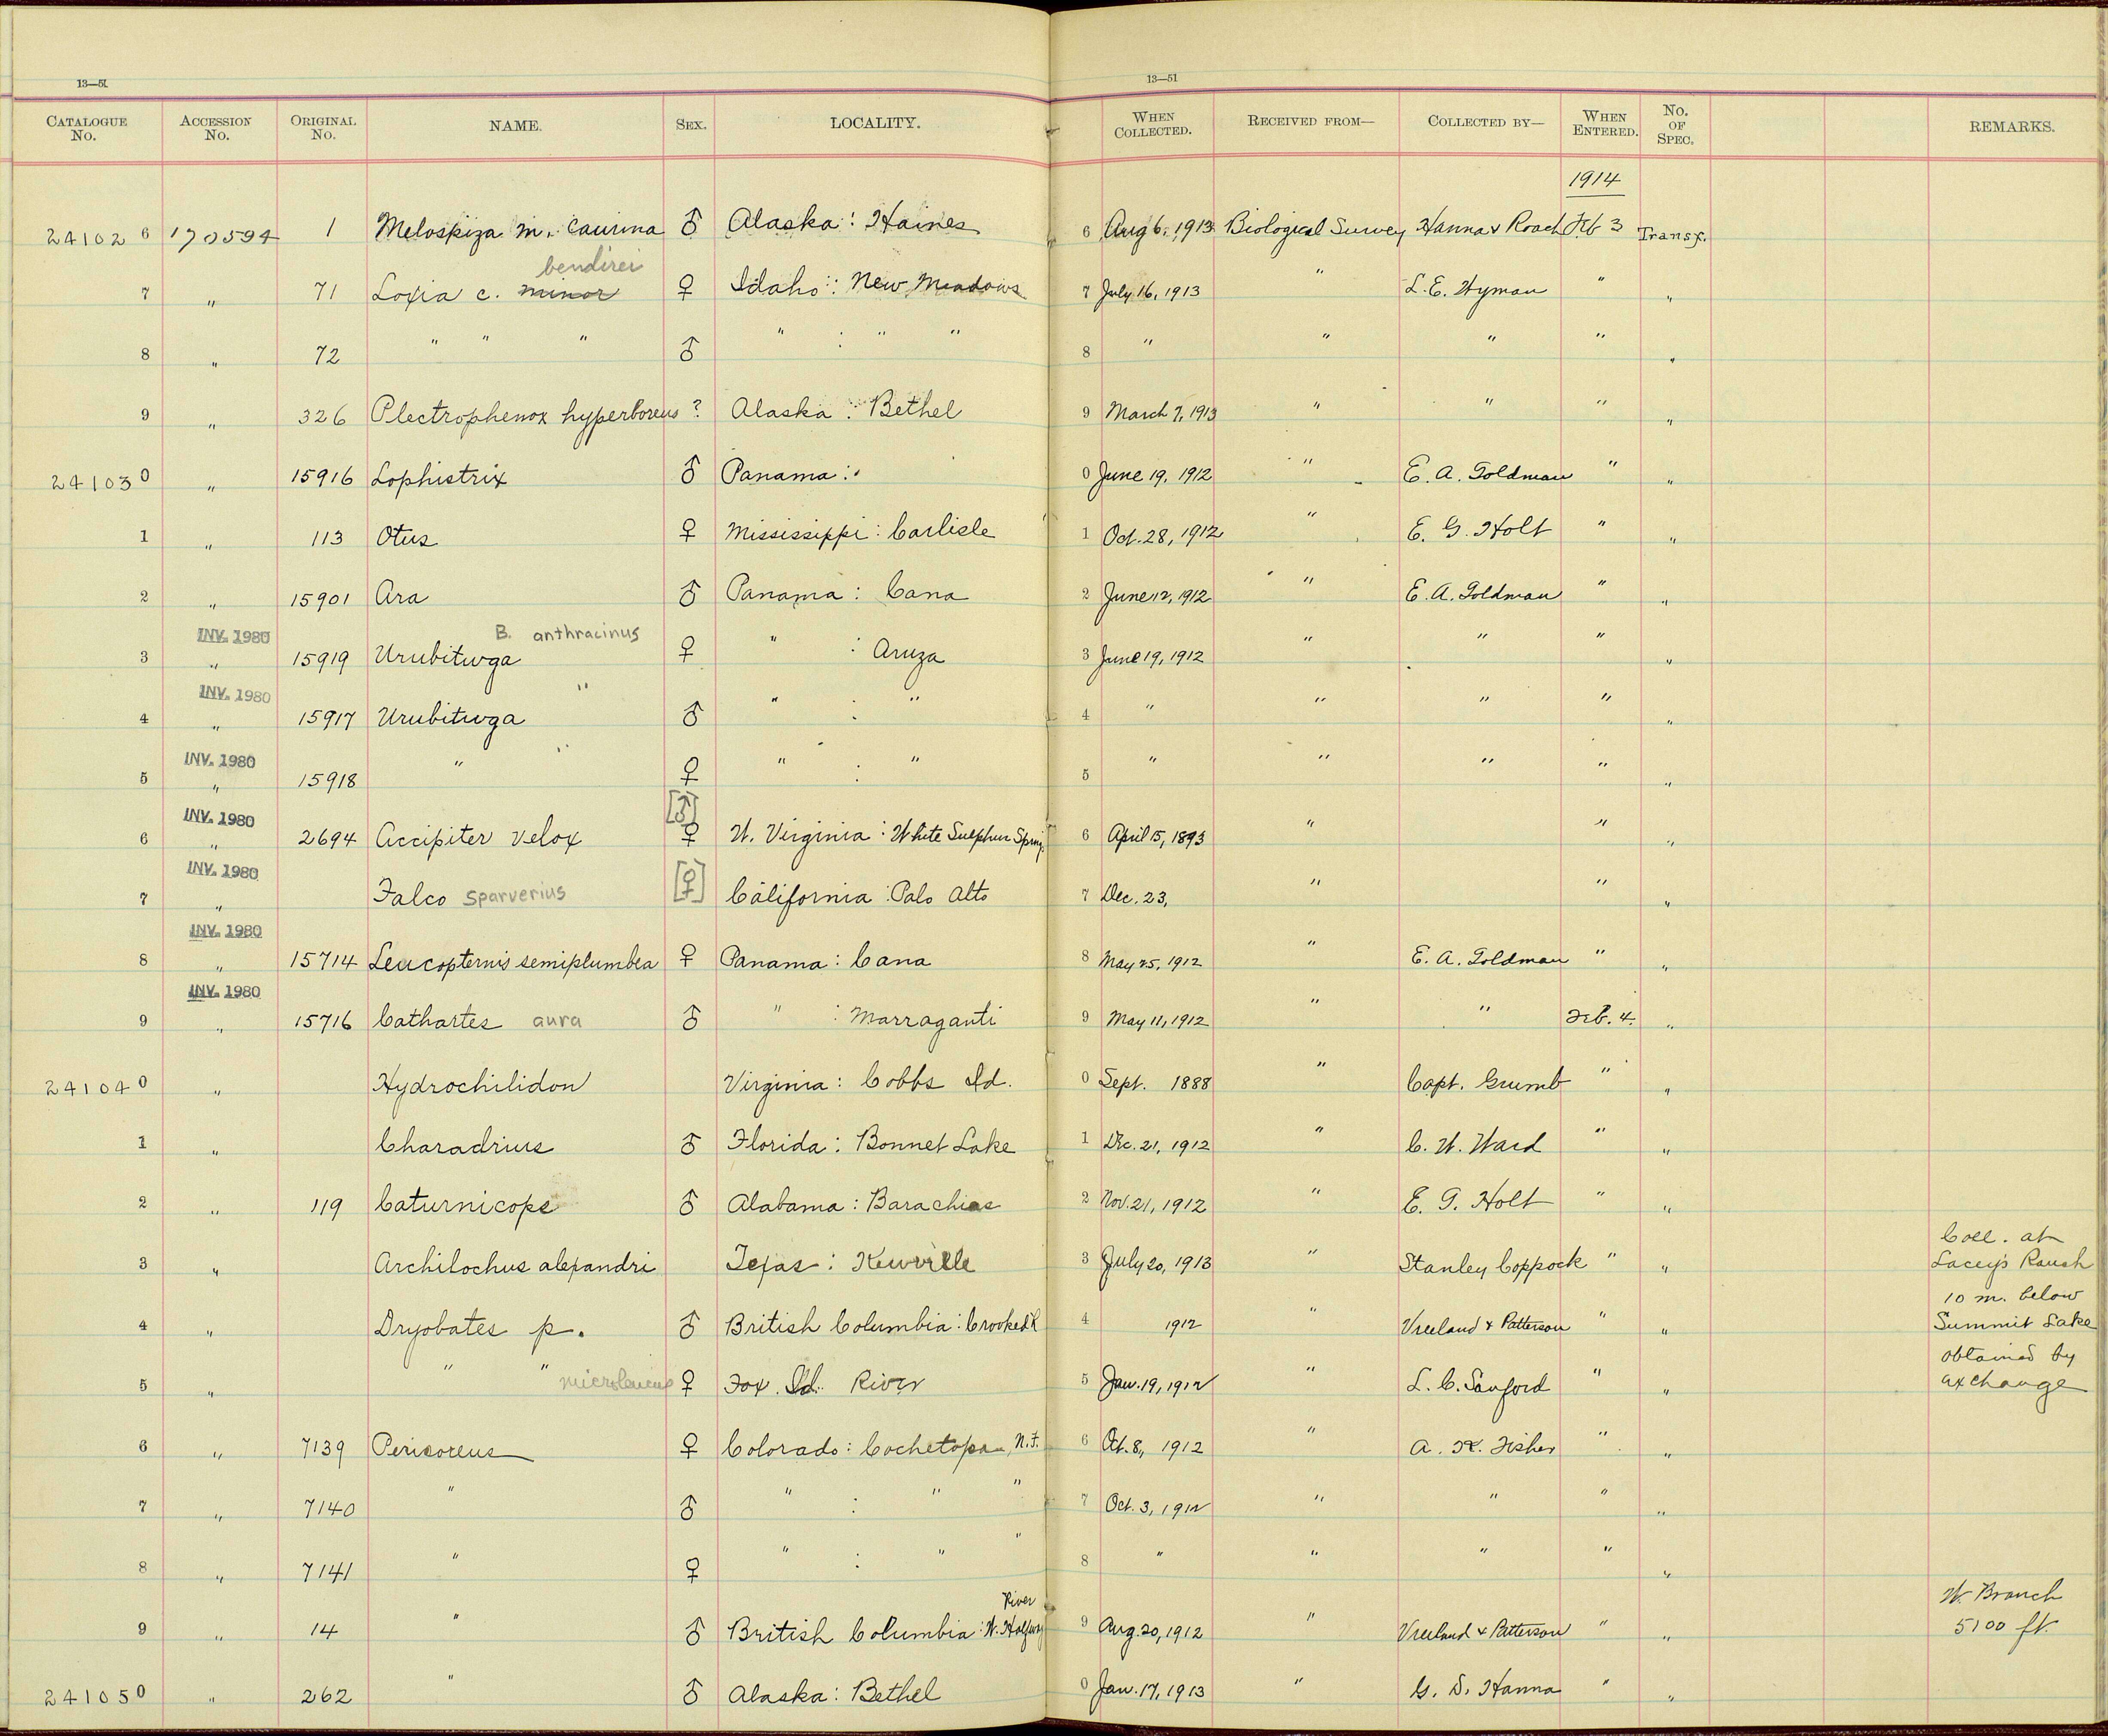 13—51
13—51
CATALOGUE No. ACCESSION No. ORIGINAL No. NAME. SEX. LOCALITY. WHEN COLLECTED. RECEIVED FROM— COLLECTED BY— WHEN ENTERED. No. OF SPEC. REMARKS.
1914
241026 170594 1 Melospiza m. caurina ♂ Alaska: Haines 6 Aug 6, 1913 Biological Survey Hanna & Roach Feb 3 Transf.
bendirei
7 " 71 Loxia c. minor ♀ Idaho: New Meadows 7 July 16, 1913 " L. E. Wyman " "
8 " 72 " " " ♂ " : " " 8 " " " " "
9 " 326 Plectrophenox hyperboreus ? Alaska: Bethel 9 March 7, 1913 " " " "
241030 " 15916 Lophistrix ♂ Panama: 0 June 19, 1912 " E. A. Goldman " "
1 " 113 Otus ♀ Mississippi: Carlisle 1 Oct. 28, 1912 " E. G. Holt " "
2 " 15901 Ara ♂ Panama: Cana 2 June 12, 1912 " E. A. Goldman " "
INV. 1980 B. anthracinus
3 " 15919 Urubitinga ♀ " : Aruza 3 June 19, 1912 " " " "
INV. 1980 "
4 " 15917 Urubitinga ♂ " : " 4 " " " " "
INV. 1980 "
5 " 15918 " ♀ " : " 5 " " " " "
INV. 1980 [♂]
6 " 2694 Accipiter velox ♀ W. Virginia: White Sulphur Spring 6 April 15, 1893 " " "
INV. 1980
7 " Falco sparverius [♀] California: Palo Alto 7 Dec. 23, " " "
INV. 1980
8 " 15714 Leucopternis semiplumbea ♀ Panama: Cana 8 May 25, 1912 " E. A. Goldman " "
INV. 1980
9 " 15716 Cathartes aura ♂ " : Marraganti 9 May 11, 1912 " " Feb. 4. "
241040 " Hydrochilidon Virginia: Cobbs Id. 0 Sept. 1888 " Capt. Crumb " "
1 " Charadrius ♂ Florida: Bonnet Lake 1 Dec. 21, 1912 " C. W. Ward " "
2 " 119 Coturnicops ♂ Alabama: Barachias 2 Nov. 21, 1912 " E. G. Holt " "
Coll. at
3 " Archilochus alexandri Texas: Kerrville 3 July 20, 1913 " Stanley Coppock " " Lacey's Ranch
10 m. below
4 " Dryobates p. ♂ British Columbia: Crooked R 4 1912 " Vreeland & Patterson " " Summit Lake
obtained by
5 " " " microleucus ♀ Fox Id. River 5 Jan. 19, 1912 " L. C. Sanford " " exchange
6 " 7139 Perisoreus ♀ Colorado: Cochetopa N.F. 6 Oct. 8, 1912 " A. K. Fisher " "
7 " 7140 " ♂ " : " " 7 Oct. 3, 1912 " " " "
8 " 7141 " ♀ " : " " 8 " " " " "
River W. Branch
9 " 14 " ♂ British Columbia: W. Halfway 9 Aug. 20, 1912 " Vreeland & Patterson " " 5100 ft.
241050 " 262 " ♂ Alaska: Bethel 0 Jan. 17, 1913 " G. D. Hanna " "